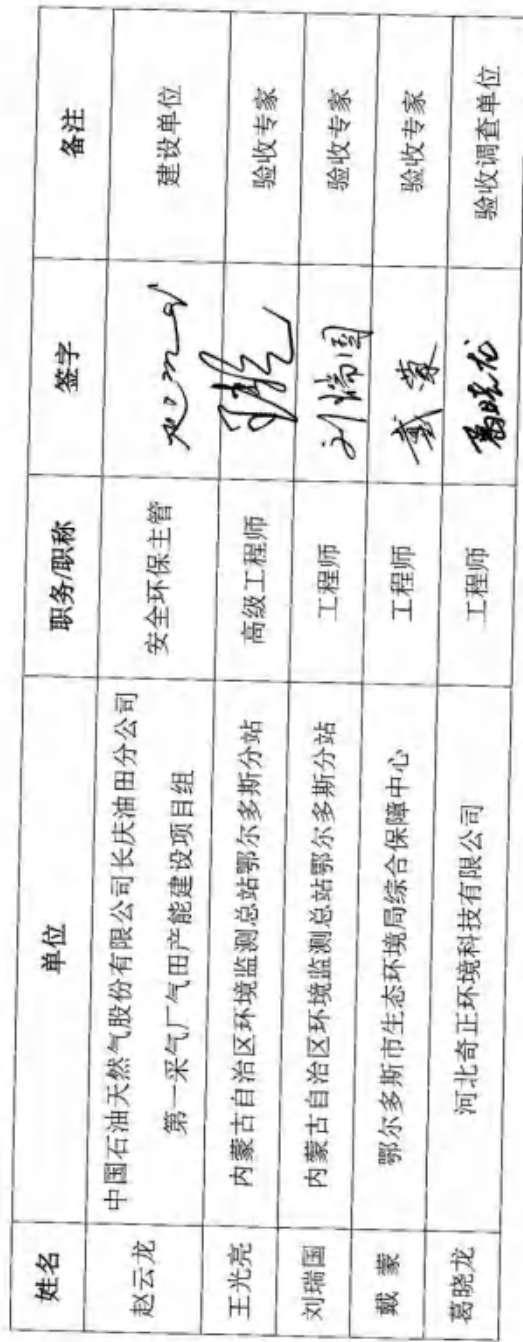 姓名 单位 职务/职称 签字 备注
赵云龙 中国石油天然气股份有限公司长庆油田分公司 安全环保主管 建设单位
第一采气厂气田产能建设项目组
王光亮 内蒙古自治区环境监测总站鄂尔多斯分站 高级工程师 验收专家
刘瑞国 内蒙古自治区环境监测总站鄂尔多斯分站 工程师 刘瑞国 验收专家
戴 蒙 鄂尔多斯市生态环境局综合保障中心 工程师 戴蒙 验收专家
葛晓龙 河北奇正环境科技有限公司 工程师 葛晓龙 验收调查单位